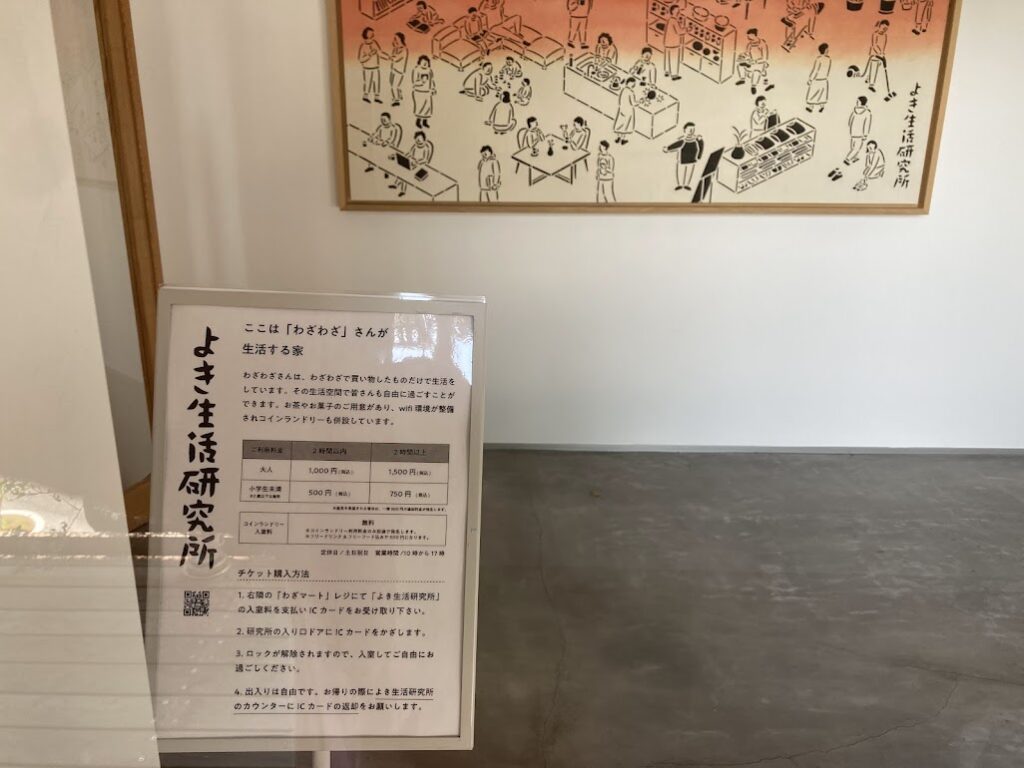 よき生活研究所
よき生活研究所
ここは「わざわざ」さんが
生活する家
わざわざさんは、わざわざで買い物したものだけで生活を
しています。その生活空間で皆さんも自由に過ごすことが
できます。お茶やお菓子のご用意があり、wifi 環境が整備
されコインランドリーも併設しています。
ご利用料金 2時間以内 2時間以上
大人 1,000 円(税込) 1,500 円(税込)
小学生未満 500 円(税込) 750 円(税込)
コインランドリー 無料
入室料
※コインランドリー利用料金のみ別途が発生します。
定休日/土日祝日 営業時間/10 時から 17 時
チケット購入方法
1. 右隣の「わざマート」レジにて「よき生活研究所」
の入室料を支払い IC カードをお受け取り下さい。
2. 研究所の入り口ドアに IC カードをかざします。
3. ロックが解除されますので、入室してご自由にお
過ごしください。
4. 出入りは自由です。お帰りの際によき生活研究所
のカウンターに IC カードの返却をお願いします。